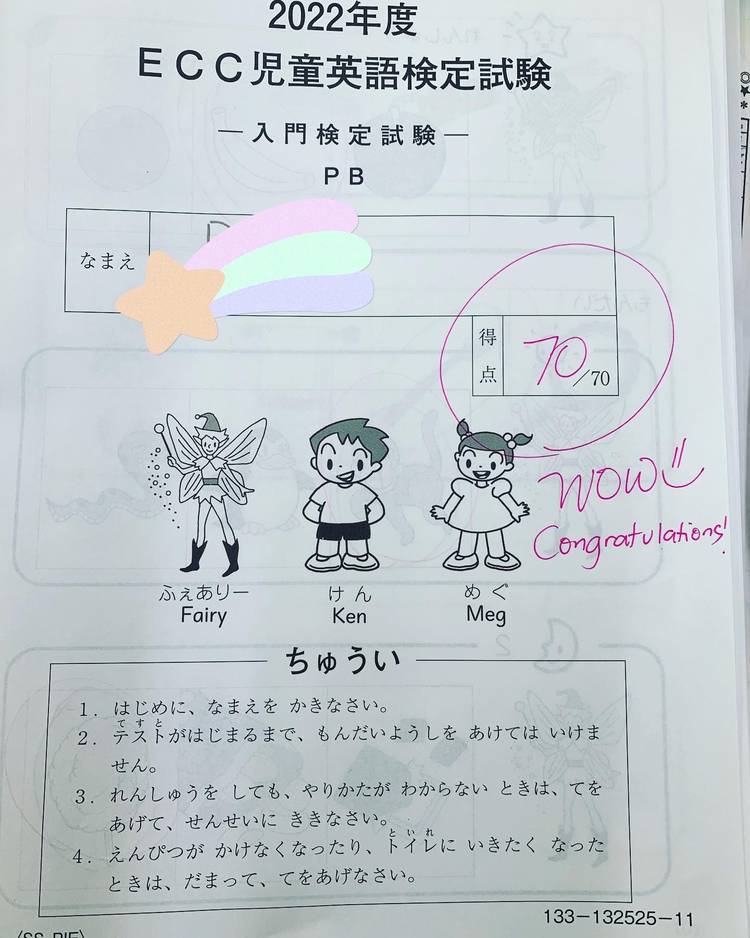 2022年度
ECC児童英語検定試験
―入門検定試験―
PB
なまえ
得点
70/70
WOW
Congratulations!
ふぇありー けん めぐ
Fairy Ken Meg
ちゅうい
1. はじめに、なまえを かきなさい。
てすと
2. テストがはじまるまで、もんだいようしを あけては いけま
せん。
3. れんしゅうを しても、やりかたが わからない ときは、てを
あげて、せんせいに ききなさい。
といれ
4. えんぴつが かけなくなったり、トイレに いきたく なった
ときは、だまって、てをあげなさい。
133-132525-11